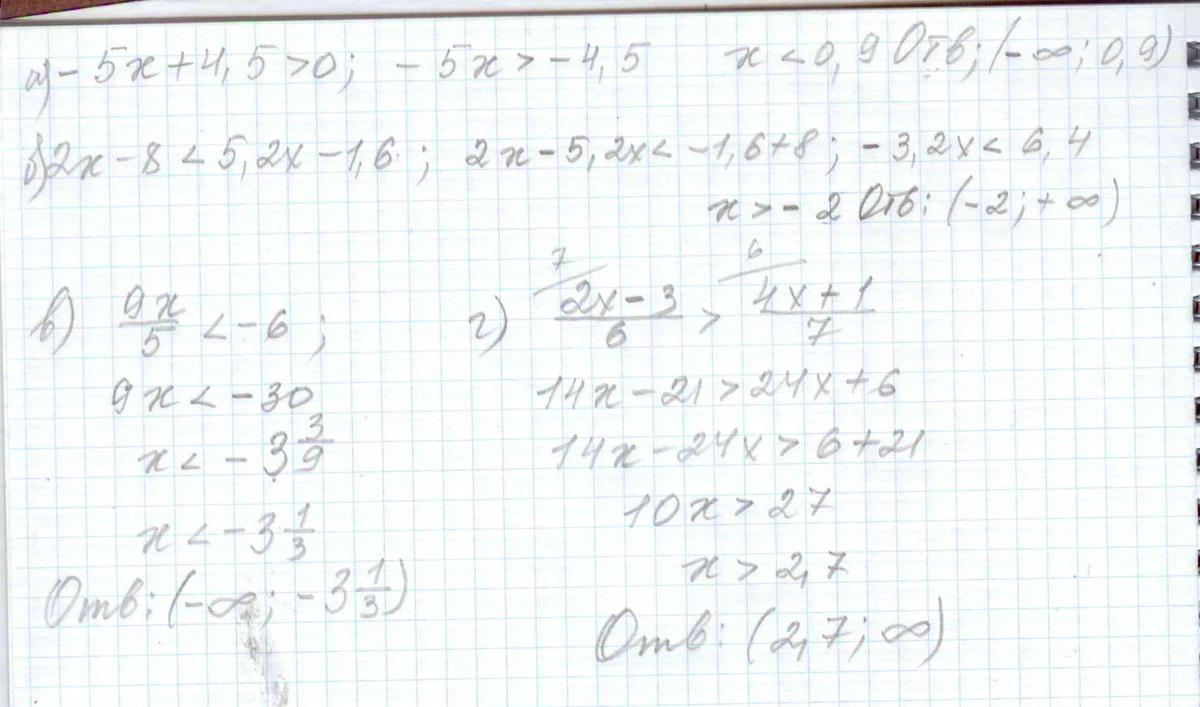 а) - 5x + 4,5 > 0; - 5x > - 4,5 x < 0,9 Отв; (- ∞; 0,9)
б) 2x - 8 < 5,2x - 1,6; 2x - 5,2x < - 1,6 + 8; - 3,2x < 6,4
x > - 2 Отв: (- 2; + ∞)
в) 9x/5 < - 6;
9x < - 30
x < - 3 3/9
x < - 3 1/3
Отв: (- ∞; - 3 1/3)
7 6
г) 2x - 3/6 > 4x + 1/7
14x - 21 > 24x + 6
14x - 24x > 6 + 21
10x > 27
x > 2,7
Отв: (2,7; ∞)